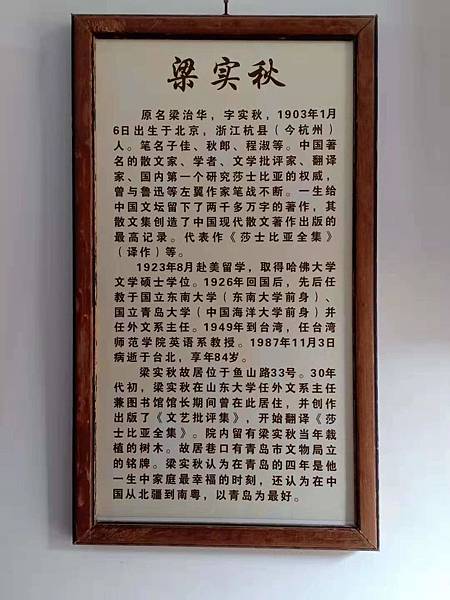 梁实秋
原名梁治华，字实秋，1903年1月
6日出生于北京，浙江杭县（今杭州）
人。笔名子佳、秋郎、程淑等。中国著
名的散文家、学者、文学批评家、翻译
家、国内第一个研究莎士比亚的权威，
曾与鲁迅等左翼作家笔战不断。一生给
中国文坛留下了两千多万字的著作，其
散文集创造了中国现代散文著作出版的
最高记录。代表作《莎士比亚全集》
（译作）等。
1923年8月赴美留学，取得哈佛大学
文学硕士学位。1926年回国后，先后任
教于国立东南大学（东南大学前身）、
国立青岛大学（中国海洋大学前身）并
任外文系主任。1949年到台湾，任台湾
师范学院英语系教授。1987年11月3日
病逝于台北，享年84岁。
梁实秋故居位于鱼山路33号。30年
代初，梁实秋在山东大学任外文系主任
兼图书馆馆长期间曾在此居住，并创作
出版了《文艺批评集》，开始翻译《莎
士比亚全集》。院内留有梁实秋当年栽
植的树木。故居巷口有青岛市文物局立
的铭牌。梁实秋认为在青岛的四年是他
一生中家庭最幸福的时刻，还认为在中
国从北疆到南粤，以青岛为最好。